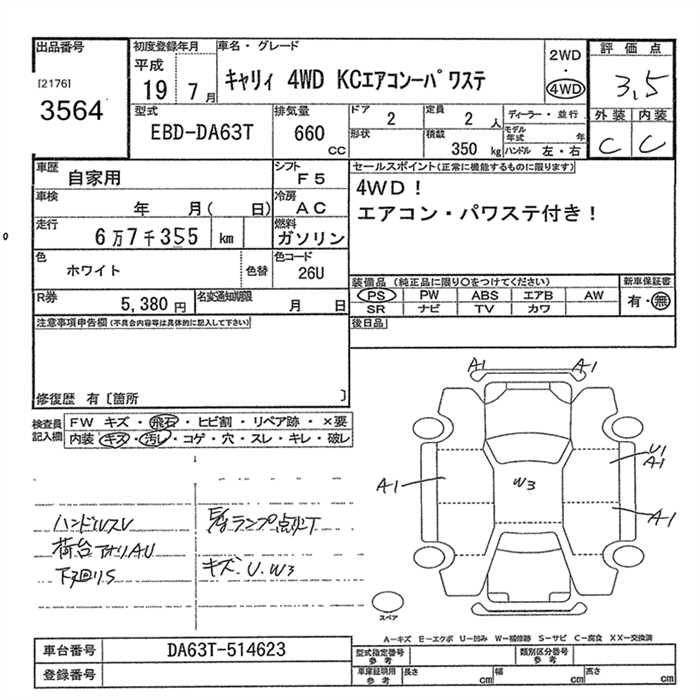 出品番号
[2176]
3564
初度登録年月
平成
19 7月
車名・グレード
キャリィ 4WD KCエアコン-パワステ
2WD
・
4WD
評価点
3,5
外装 内装
C C
型式
EBD-DA63T
排気量
660
CC
ドア
2
定員
2 人
形状
積載
350 kg
ディーラー・並行
モデル年式 年
ハンドル 左・右
車歴
自家用
シフト
F5
車検
年 月( 日)
冷房
AC
走行
6万7千355 km
燃料
ガソリン
色
ホワイト
色替
色コード
26U
R券
5,380 円
名変通知期限
月 日
セールスポイント(正常に機能するものに限ります)
4WD!
エアコン・パワステ付き!
装備品 (純正品に限り○をつけてください)
PS PW ABS エアB AW
SR ナビ TV カワ
新車保証書
有・無
後日品
注意事項申告欄(不具合内容等は具体的に記入して下さい)
修復歴 有〔箇所 〕
検査員記入欄
FW キズ・飛石・ヒビ割・リペア跡・×要
内装 キズ・汚レ・コゲ・穴・スレ・キレ・破レ
ハンドルスレ
荷台アオリAU
下廻りS
ランプ点灯
キズ、U、W3
A1
A1
U1
A1
W3
A1
A1
スペア
A-キズ E-エクボ U-凹み W-補修跡 S-サビ C-腐食 XX-交換済
車台番号
DA63T-514623
登録番号
型式指定番号
参考
類別区分番号
参考
車庫証明用
参考
長さ cm
幅 cm
高さ cm